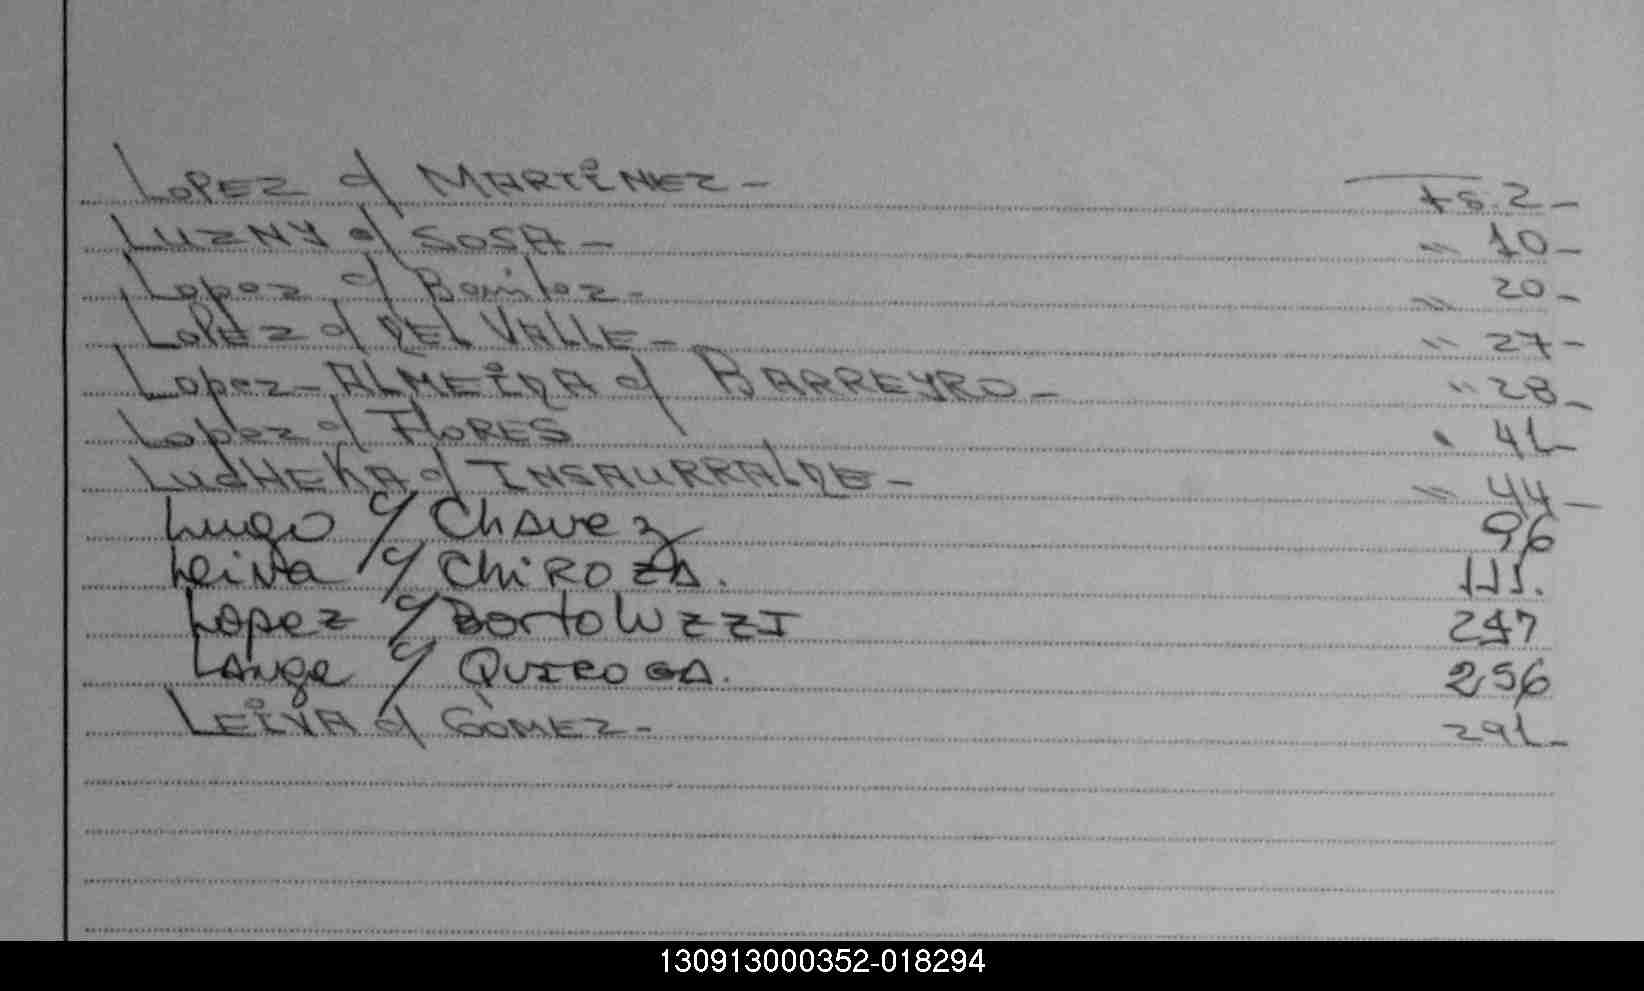 LOPEZ c/ MARTINEZ - fs. 2 -
LUZNY c/ SOSA - " 10 -
Lopez c/ Benitez - " 20 -
LOPEZ c/ DEL VALLE - " 27 -
LOPEZ-ALMEIDA c/ BARREYRO - " 28 -
Lopez c/ FLORES " 41 -
LUDHEKA c/ INSAURRALDE - " 44 -
Lugo c/ Chavez 96
Leiva c/ CHIROZA. 111.
Lopez c/ Bortoluzzi 247
Lange c/ QUIROGA. 256
LEIVA c/ GOMEZ - 291 -
130913000352-018294